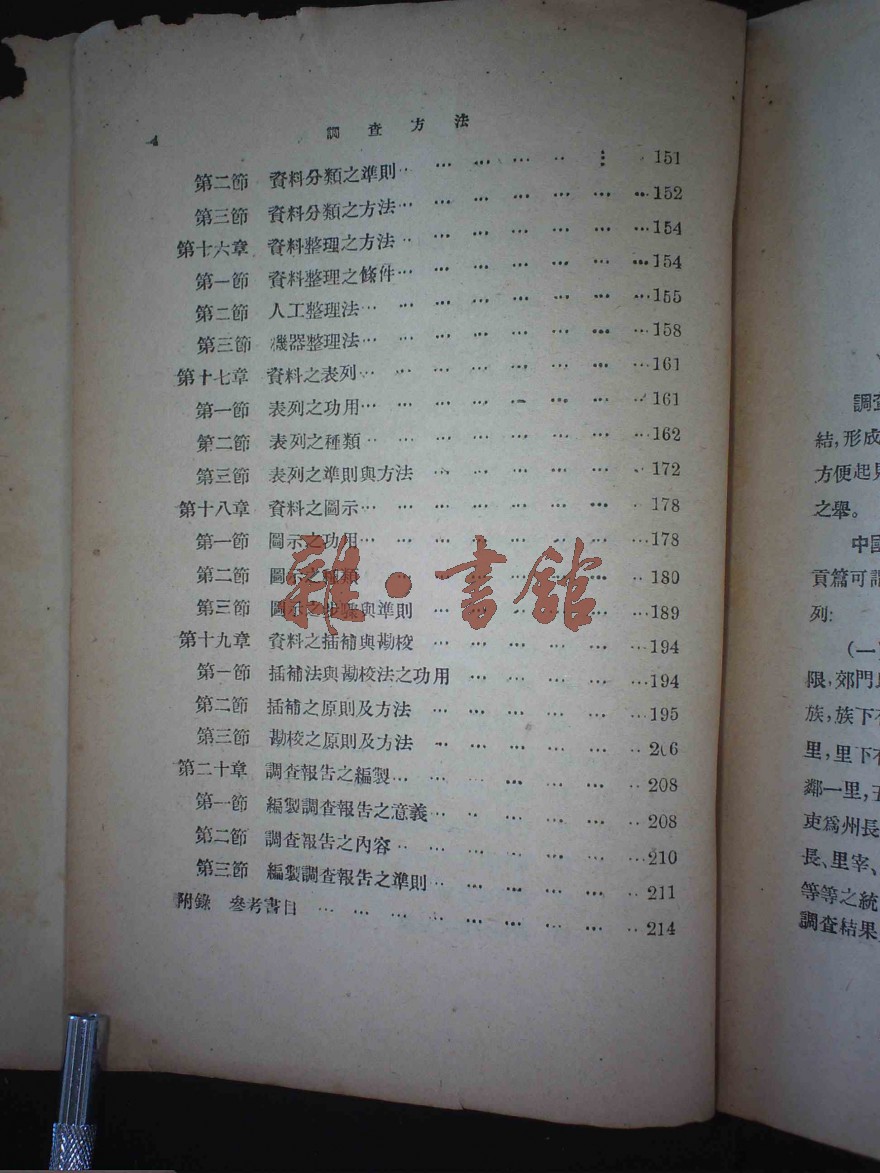 4 調查方法
第二節 資料分類之準則 … … … … … 151
第三節 資料分類之方法 … … … … … 152
第十六章 資料整理之方法 … … … … … 154
第一節 資料整理之條件 … … … … … 154
第二節 人工整理法 … … … … … … 155
第三節 機器整理法 … … … … … … 158
第十七章 資料之表列 … … … … … … 161
第一節 表列之功用 … … … … … … 161
第二節 表列之種類 … … … … … … 162
第三節 表列之準則與方法 … … … … … 172
第十八章 資料之圖示 … … … … … … 178
第一節 圖示之功用 … … … … … … 178
第二節 圖示之種類 … … … … … … 180
第三節 圖示之步驟與準則 … … … … … 189
第十九章 資料之插補與勘校 … … … … … 194
第一節 插補法與勘校法之功用 … … … … … 194
第二節 插補之原則及方法 … … … … … 195
第三節 勘校之原則及方法 … … … … … 206
第二十章 調查報告之編製 … … … … … 208
第一節 編製調查報告之意義 … … … … … 208
第二節 調查報告之內容 … … … … … 210
第三節 編製調查報告之準則 … … … … … 211
附錄 參考書目 … … … … … … … … 214
雜·書館
調查
結,形成
方便起見
之舉。
中國
貢篇可謂
列:
(一)
限,郊門
族,族下有
里,里下有
鄰一里,五
吏爲州長
長、里宰、
等等之統
調查結果